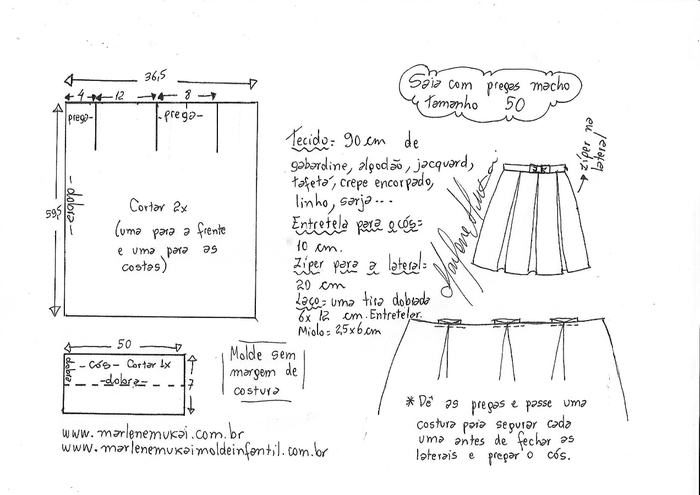 36,5
4 12 8
prega- -prega-
59,5
-dobra-
Cortar 2x
(uma para a frente
e uma para as
costas)
50
dobra
-cós- Cortar 1x
-dobra-
7
Molde sem
margem de
costura
www.marlenemukai.com.br
www.marlenemukaimoldeinfantil.com.br
Saia com pregas macho
tamanho 50
Tecido= 90 cm de
gabardine, algodão, jacquard,
tafetá, crepe encorpado,
linho, sarja...
Entretela para o cós=
10 cm.
Zíper para a lateral=
20 cm
Laço= uma tira dobrada
6x 12 cm. Entretelar.
Miolo= 2,5x6cm
Marlene Mukai
zíper na
lateral
* Dê as pregas e passe uma
costura para segurar cada
uma antes de fechar as
laterais e pregar o cós.